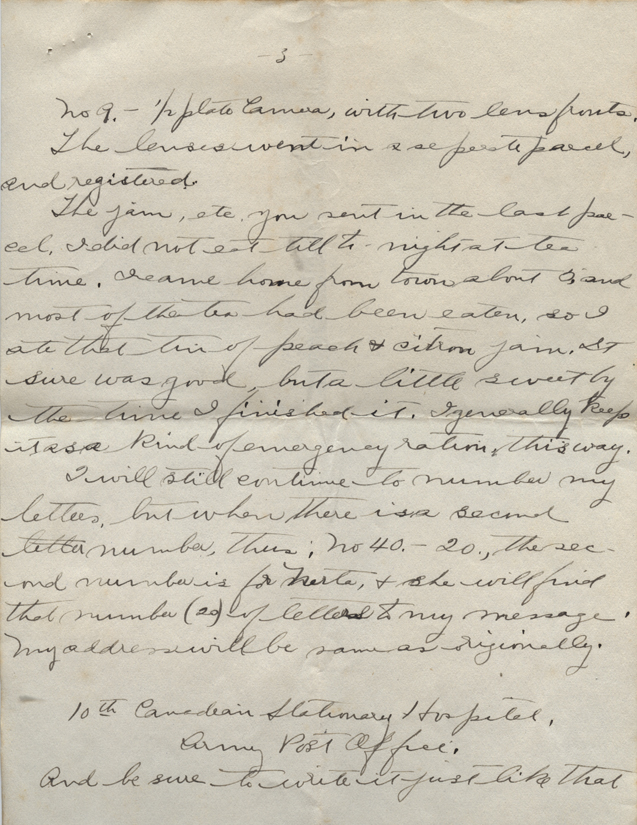 - 3 -
No 9. - 1/2 plate Camera, with two lens fronts.
The lenses went in a seperate parcel,
and registered.
The jam, etc. you sent in the last par-
cel, I did not eat till to-night at tea
time. I came home from town about 5 and
most of the tea had been eaten, so I
ate that tin of peach & citron jam. It
sure was good, but a little sweet by
the time I finished it. I generally keep
it as a kind of emergency ration, this way.
I will still continue to number my
letters, but when there is a second
letter number, thus; No 40. - 20., the sec-
ond number is for , & she will find
that number (20) of letters to my message.
My address will be same as origionally.
10th Canadian Stationary Hospital,
Army Post Office.
And be sure to write it just like that